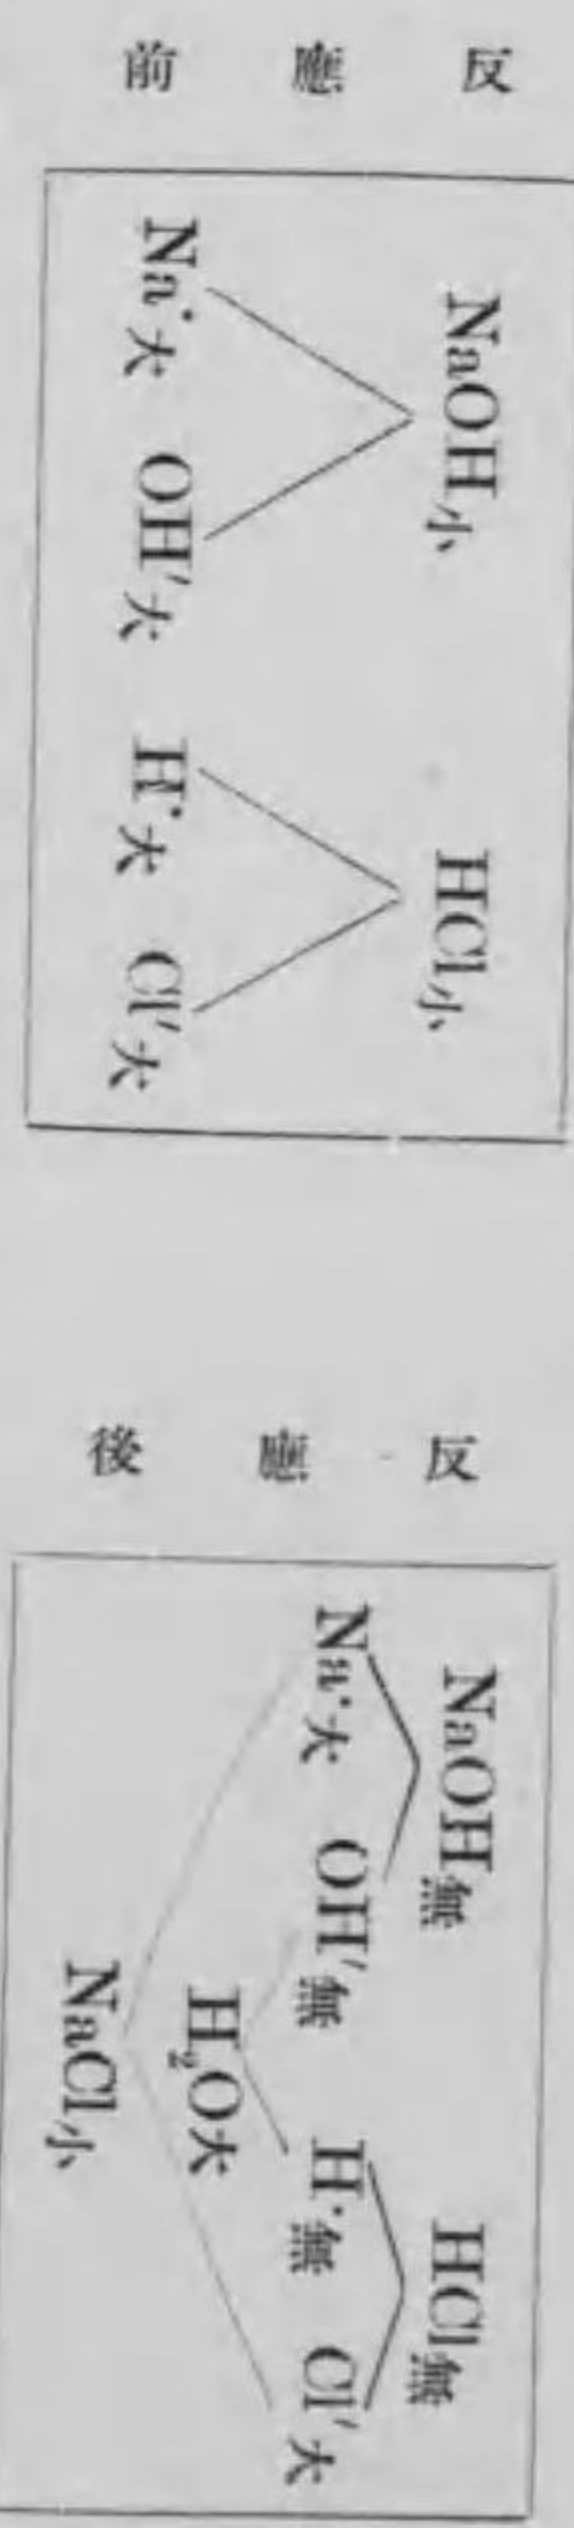 反應前
NaOH小 HCl小
Na˙大 OH′大 H˙大 Cl′大
反應後
NaOH無 HCl無
Na˙大 OH′無 H˙無 Cl′大
H₂O大
NaCl小